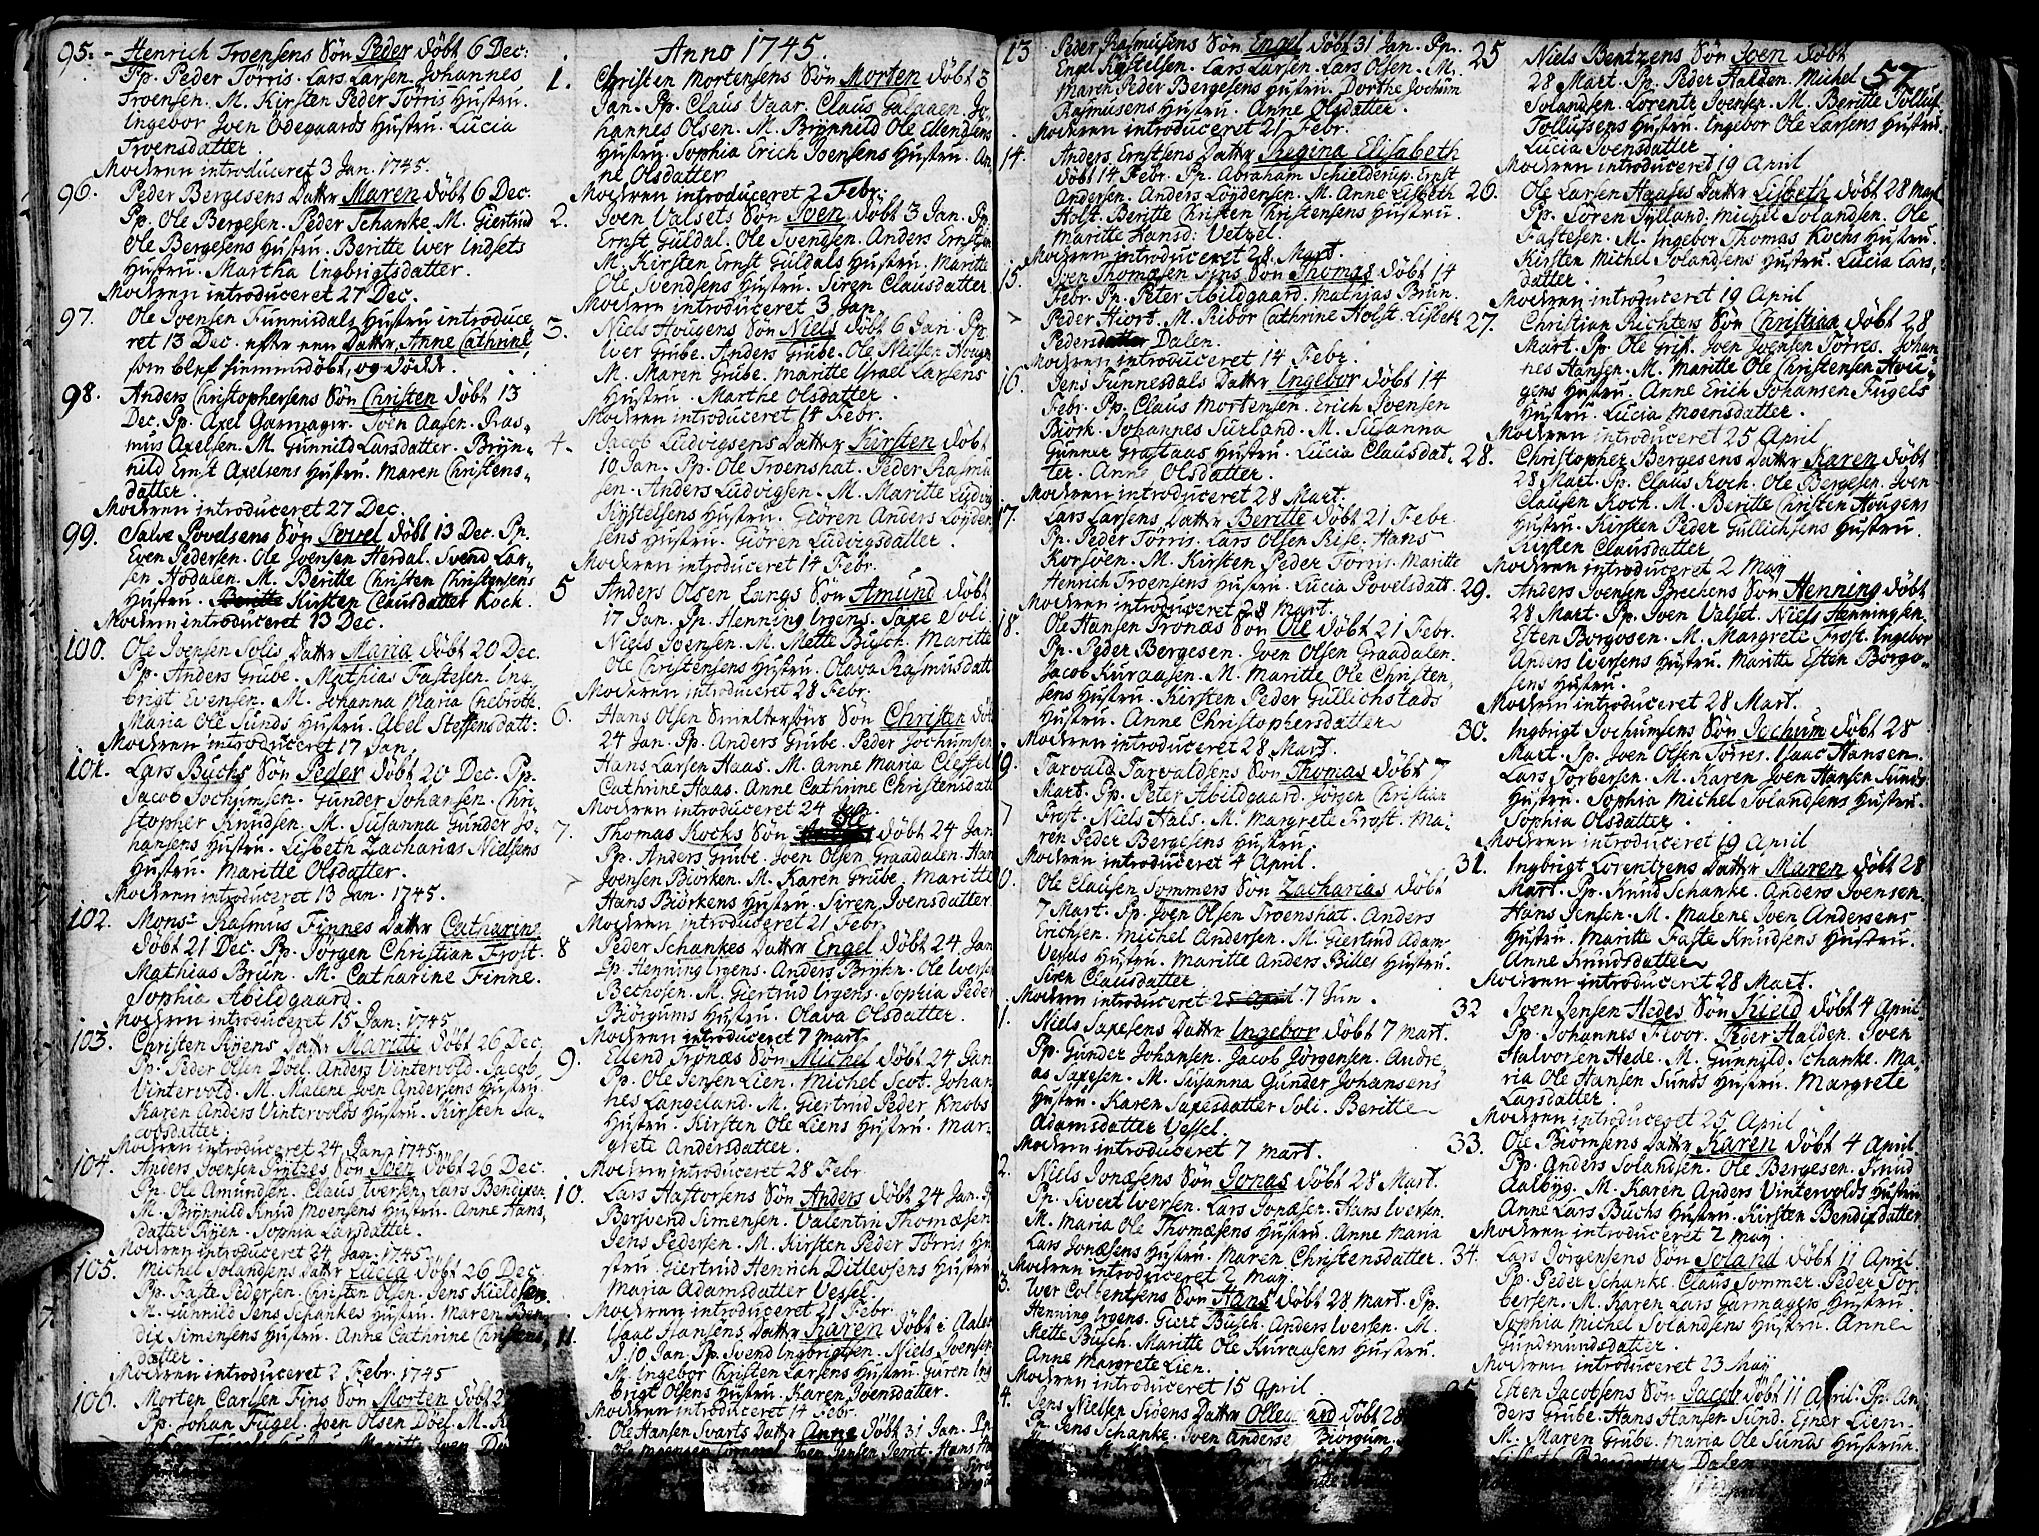 95. - Henrich Troensens Sön Peder döbt 6 Dec:
Pp. Peder Törris. Lars Larsen. Johannes
Troensen. M. Kirsten Peder Törris Hustru.
Ingebor Joen Ödegaards Hustru. Lucia
Troensdatter.
Modren introduceret 3 Jan. 1745.
96. Peder Bergesens Datter Maren döbt 6 Dec.
Pp. Ole Bergesen. Peder Schanke. M. Giertrud
Ole Bergesens Hustru. Beritte Iver Indsets
Hustru. Martha Ingbrigtsdatter.
Modren introduceret 27 Dec.
97. Ole Joensen Funnisdals Hustru introduce
ret 13 Dec. efter een Datter Anne Cathrine,
som blef hiemmedöbt, og döde.
98. Anders Christophersens Sön Christen döbt 13
Dec. Pp. Axel Garmager. Joen Aasen. Ras-
mus Axelsen. M. Gunnild Larsdatter. Bryn-
hild Ernst Axelsens Hustru. Maren Christens-
datter.
Modren introduceret 27 Dec.
99. Salve Povelsens Sön Povel döbt 13 Dec. Pp.
Even Pedersen. Ole Joensen Herdal. Svend Lar-
sen Hodalen. M. Beritte Christen Christensens
Hustru. Kirsten Clausdatter Koch.
Modren introduceret 13 Dec.
100. Ole Joensen Solis Datter Maria döbt 20 Dec.
Pp. Anders Grube. Mathias Fastesen. Ing-
brigt Evensen. M. Johanna Maria Chebroth.
Maria Ole Sunds Hustru. Abel Steffensdatt:
Modren introduceret 17 Jan.
101. Lars Buchs Sön Peder döbt 20 Dec. Pp.
Jacob Jochumsen. Gunder Johansen. Chri-
stopher Knudsen. M. Susanna Gunder Jo-
hansens Hustru. Lisbeth Zacharias Nielsens
Hustru. Maritte Olsdatter.
Modren introduceret 13 Jan. 1745.
102. Monsr Rasmus Finnes Datter Catharina
döbt 21 Dec. Pp. Jörgen Christian Frost.
Mathias Brun. M. Catharine Finne.
Sophia Abildgaard.
Modren introduceret 15 Jan. 1745
103. Christen Ryens Datter Maritte döbt 26 Dec.
Pp. Peder Olsen Doel. Anders Vintervold. Jacob
Vintervold. M. Malene Joen Andersens Hustru.
Karen Anders Vintervolds Hustru. Kirsten Ja-
cobsdatter.
Modren introduceret 24 Jan. 1745.
104. Anders Joensen Prytzes Sön Joen döbt 26 Dec.
Pp. Ole Amundsen. Claus Iversen. Lars Bendixen
M. Brynnild Knud Moensens Hustru. Anne Hans-
datter Ryen. Sophia Larsdatter.
Modren introduceret 24 Jan. 1745
105. Michel Solandsens Datter Lucia döbt 26 Dec.
Pp. Faste Pedersen. Christen Olsen. Jens Kieldsen
M. Gunnild Jens Schankes Hustru. Maren Ben-
dix Simensens Hustru. Anne Cathrine Christens-
datter.
Modren introduceret 2 Febr. 1745
106. Morten Carlsen Fins Sön Morten döbt
Pp. Johan Fugel. Joen Olsen Doel. M.
Anno 1745.
1. Christen Mortensens Sön Morten döbt 3
Jan. Pp. Claus Vaar. Claus Galaaen. Jo-
hannes Olsen. M. Brynnild Ole Ellendsens
Hustru. Sophia Erich Joensens Hustru. An-
ne Olsdatter
Modren introduceret 2 Febr:
2. Joen Valsets Sön Joen döbt 3 Jan. Pp.
Ernst Guldal. Ole Svendsen. Anders Ernstsen
M. Kirsten Ernst Guldals Hustru. Maritte
Ole Svendsens Hustru. Siren Clausdatter
Modren introduceret 3 Jan.
3. Niels Hougens Sön Niels döbt 6 Jan. Pp.
Iver Grube. Anders Grube. Ole Nilsen Hougen
M. Maren Grube. Maritte Israel Larsens
Hustru. Marthe Olsdatter.
Modren introduceret 14 Febr.
4. Jacob Ludvigsens Datter Kirsten döbt
10 Jan. Pp. Ole Troenshat. Peder Rasmu
sen. Anders Ludvigsen. M. Maritte Ludvig
Kystelsens Hustru. Giören Anders Loyden
sens Hustru. Giören Ludvigsdatter.
Modren introduceret 14 Febr.
5 Anders Olsen Langs Sön Amund döbt
17 Jan. Pp. Henning Irgens. Saxe Soli.
Niels Joensen. M. Mette Busch. Maritte
Ole Christensens Hustru. Olava Rasmusdatt
Modren introduceret 28 Febr.
6. Hans Olsen Smeltersbus Sön Christen döbt
24 Jan. Pp. Anders Grube. Peder Jochumsen
Hans Larsen Haas. M. Anne Maria Cieffel
Cathrine Haas. Anne Cathrine Christensdatt
Modren introduceret 24 Jan.
7. Thomas Kochs Sön Ole döbt 24 Jan
Pp. Anders Grube. Joen Olsen Graadalen. Han
Joensen Biorken. M. Karen Grube. Maritte
Hans Biörkens Hustru. Siren Joensdatter
Modren introduceret 21 Febr.
8 Peder Schankes Datter Engel döbt 24 Jan
Pp. Henning Irgens. Anders Bryhn. Ole Iversen
Bethosen. M. Giertrud Irgens. Sophia Peder
Biörgums Hustru. Olava Olsdatter.
Modren introduceret 7 Mart.
9. Ellend Trönæs Sön Michel döbt 24 Jan
Pp. Ole Jensen Lien. Michel Scot. Johan
nes Langeland. M. Giertrud Peder Knobs
Hustru. Kirsten Ole Liens Hustru. Mar-
grete Andersdatter.
Modren introduceret 28 Febr.
10. Lars Hattorsens Sön Anders döbt 24 Jan. P
Bersvend Simensen. Valentin Thomæsen
Jens Pedersen. M. Kirsten Peder Törris Hu
stru. Giertrud Henrich Ditlevsens Hustru
Maria Adamsdatter Vessel.
Modren introduceret 21 Febr.
11. Isaac Hansens Datter Karen döbt i Aalen
d. 10 Jan. Pp. Svend Ingbrigtsen. Niels Joensen
M. Ingebor Christen Larsens Hustru. Guren Ing
brigt Olsens Hustru. Karen Joensdatter.
Modren introduceret 14 Febr.
Ole Hansen Svarts Datter Anne döbt 31 Jan. Pp
13 Peder Rasmusens Sön Engel döbt 31 Jan. Pp.
Engel Kystelsen. Lars Larsen. Lars Olsen. M.
Maren Peder Bergesens Hustru. Dorthe Jochum
Rasmusens Hustru. Anne Olsdatter.
Modren introduceret 21 Febr.
14. Anders Ernstsens Datter Regina Elisabeth
döbt 14 Febr. Pp. Abraham Schielderup. Ernst
Andersen. Anders Loydensen. M. Anne Lisbeth
Holst. Beritte Christen Christensens Hustru.
Maritte Hansd: Vetzel.
Modren introduceret 28 Mart.
15. Joen Thomæsen Fins Sön Thomas döbt 14
Febr. Pp. Peter Abildgaard. Mathias Brun.
Peder Hiort. M. Ribor Cathrine Holst. Lisbeth
Pedersdatter Dalen.
Modren introduceret 14 Febr.
16. Jens Funnesdals Datter Ingebor döbt 14
Febr. Pp. Claus Mortensen. Erich Joensen
Biork. Johannes Surland. M. Susanna
Gunner Grastaas Hustru. Lucia Clausdat-
ter. Anne Olsdatter.
Modren introduceret 28 Mart.
17. Lars Larsens Datter Beritte döbt 21 Febr.
Pp. Peder Törris. Lars Olsen Rise. Hans
Korsöen. M. Kirsten Peder Törris. Maritte
Henrich Troensens Hustru. Lucia Povelsdatt.
Modren introduceret 28 Mart.
18. Ole Hansen Tronæs Sön Ole döbt 21 Febr.
Pp. Peder Bergesen. Joen Olsen Graadalen.
Jacob Kuraasen. M. Maritte Ole Christen-
sens Hustru. Kirsten Peder Gullichstads
Hustru. Anne Christophersdatter
Modren introduceret 28 Mart.
19. Tarvald Tarvaldsens Sön Thomas döbt 7
Mart. Pp. Peter Abildgaard. Jörgen Christian
Frost. Niels Hals. M. Margrete Frost. Ma-
ren Peder Bergesens Hustru.
Modren introduceret 4 April.
0. Ole Clausen Sommers Sön Zacharias döbt
7 Mart. Pp. Joen Olsen Troenshat. Anders
Erichsen. Michel Andersen. M. Giertrud Adam
Vessels Hustru. Maritte Anders Billes Hustru.
Siren Clausdatter
Modren introduceret 25 April. 7 Jun.
1. Niels Saxesens Datter Ingebor döbt 7 Mart.
Pp. Gunder Johansen. Jacob Jörgensen. Andre
as Saxesen. M. Susanna Gunder Johansens
Hustru. Karen Saxesdatter Soli. Beritte
Adamsdatter Vessel.
Modren introduceret 7 Mart.
2. Niels Jonæsens Sön Jonas döbt 28 Mart.
Pp. Sivert Iversen. Lars Jonæsen. Hans Iversen.
M. Maria Ole Thomæsens Hustru. Anne Maria
Lars Jonæsens Hustru. Maren Christensdatter.
Modren introduceret 2 May.
3. Iver Colbentsens Sön Hans döbt 28 Mart. Pp.
Henning Irgens. Giert Busch. Anders Iversen. M.
Mette Busch. Maritte Ole Kuraasens Hustru.
Anne Margrete Lien.
Modren introduceret 15 April.
4. Jens Nielsen Siöens Datter Olleg döbt 28
Pp. Jens Schanke. Joen Anderse Biörgum.
25 Niels Bentzens Sön Joen döbt
57
28 Mart. Pp. Peder Halden. Michel
Solandsen. Lorentz Joensen. M. Beritte Tolluf
Tollufsens Hustru. Ingebor Ole Larsens Hustru.
Lucia Joensdatter.
Modren introduceret 19 April
26. Ole Larsen Haases Datter Lisbeth döbt 28 Mart
Pp. Sören Sylland. Michel Solandsen. Ole
Fastesen. M. Ingebor Thomas Kochs Hustru.
Kirsten Michel Solandsens Hustru. Lucia Lars-
datter.
Modren introduceret 19 April
27. Christian Richters Sön Christian döbt 28
Mart. Pp. Ole Grist. Joen Joensen Törres. Johan
nes Hansen. M. Maritte Ole Christensen Hou-
gens Hustru. Anne Erich Johansen Fugels
Hustru. Lucia Moensdatter.
Modren introduceret 25 April
28. Christopher Bergesens Datter Karen döbt
28 Mart. Pp. Claus Koch. Ole Bergesen. Joen
Clausen Koch. M. Beritte Christen Hougens
Hustru. Kirsten Peder Gullichsens Hustru.
Kirsten Clausdatter
Modren introduceret 2 May
29. Anders Joensen Sprechens Sön Henning döbt
28 Mart. Pp. Joen Valset. Niels Henningsen.
Esten Borgosen. M. Margrete Frost. Ingebor
Anders Iversens Hustru. Maritte Esten Borgo-
sens Hustru.
Modren introduceret 28 Mart.
30. Ingbrigt Jochumsens Sön Jochum döbt 28
Mart. Pp. Joen Olsen Törres. Isaac Hansen.
Lars Torbersen. M. Karen Joen Hansen Sunds
Hustru. Sophia Michel Solandsens Hustru.
Sophia Olsdatter.
Modren introduceret 19 April
31. Ingbrigt Lorentzens Datter Maren döbt 28
Mart. Pp. Knud Schanke. Anders Joensen.
Hans Jensen. M. Malene Joen Andersens
Hustru. Maritte Faste Knudsens Hustru.
Anne Knudsdatter
Modren introduceret 28 Mart.
32 Joen Jensen Hedes Sön Kield döbt 4 April
Pp. Johannes Floor. Peder Halden. Joen
Halvorsen Hede. M. Gunnild Schanke. Ma-
ria Ole Hansen Sunds Hustru. Margrete
Larsdatter.
Modren introduceret 25 April
33. Ole Biörnsens Datter Karen döbt 4 April
Pp. Anders Solandsen. Ole Bergesen. Knud
Aalbyg. M. Karen Anders Vintervolds Hustru
Anne Lars Buchs Hustru. Kirsten Bendixdatter
Modren introduceret 2 May.
34. Lars Jörgensens Sön Soland döbt 11 April.
Pp. Peder Schanke. Claus Sommer. Peder Tor
bersen. M. Karen Lars Garmagers Hustru.
Sophia Michel Solandsens Hustru. Anne
Gundmundsdatter.
Modren introduceret 23 May
Esten Jacobsens Sön Jacob döbt 11 April. Pp. An
ders Grube. Hans Hansen Sund. Ener Lien.
M. Maren Grube. Maria Ole Sunds Hustrue.
Lisbeth Pedersdatter Dalen